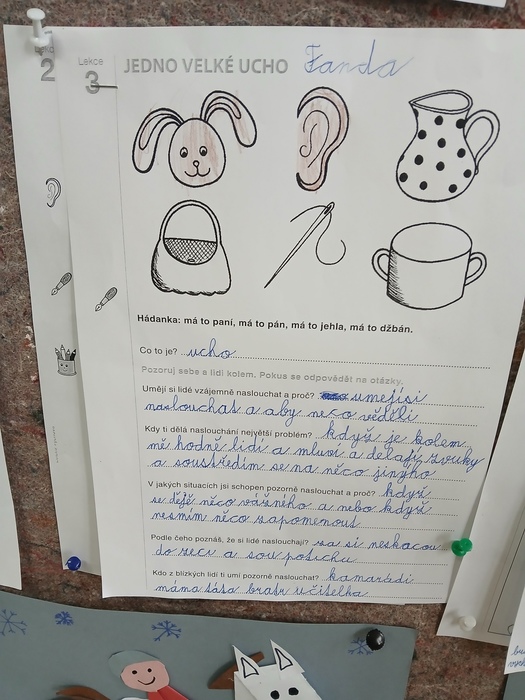 Lekce
2
3
JEDNO VELKÉ UCHO Fanda
Hádanka: má to paní, má to pán, má to jehla, má to džbán.
Co to je? ucho
Pozoruj sebe a lidi kolem. Pokus se odpovědět na otázky.
Umějí si lidé vzájemně naslouchat a proč? umějísi
naslouchat a aby neco věděli
Kdy ti dělá naslouchání největší problém? když je kolem
mě hodně lidí a mluví a delají zvuky
a soustředím se na něco jinýho
V jakých situacích jsi schopen pozorně naslouchat a proč? když
se dějě něco vážného a nebo když
nesmím něco zapomenout
Podle čeho poznáš, že si lidé naslouchají? sa si neskacou
do reci a sou potichu
Kdo z blízkých lidí ti umí pozorně naslouchat? kamarádi
máma táta bratr učitelka